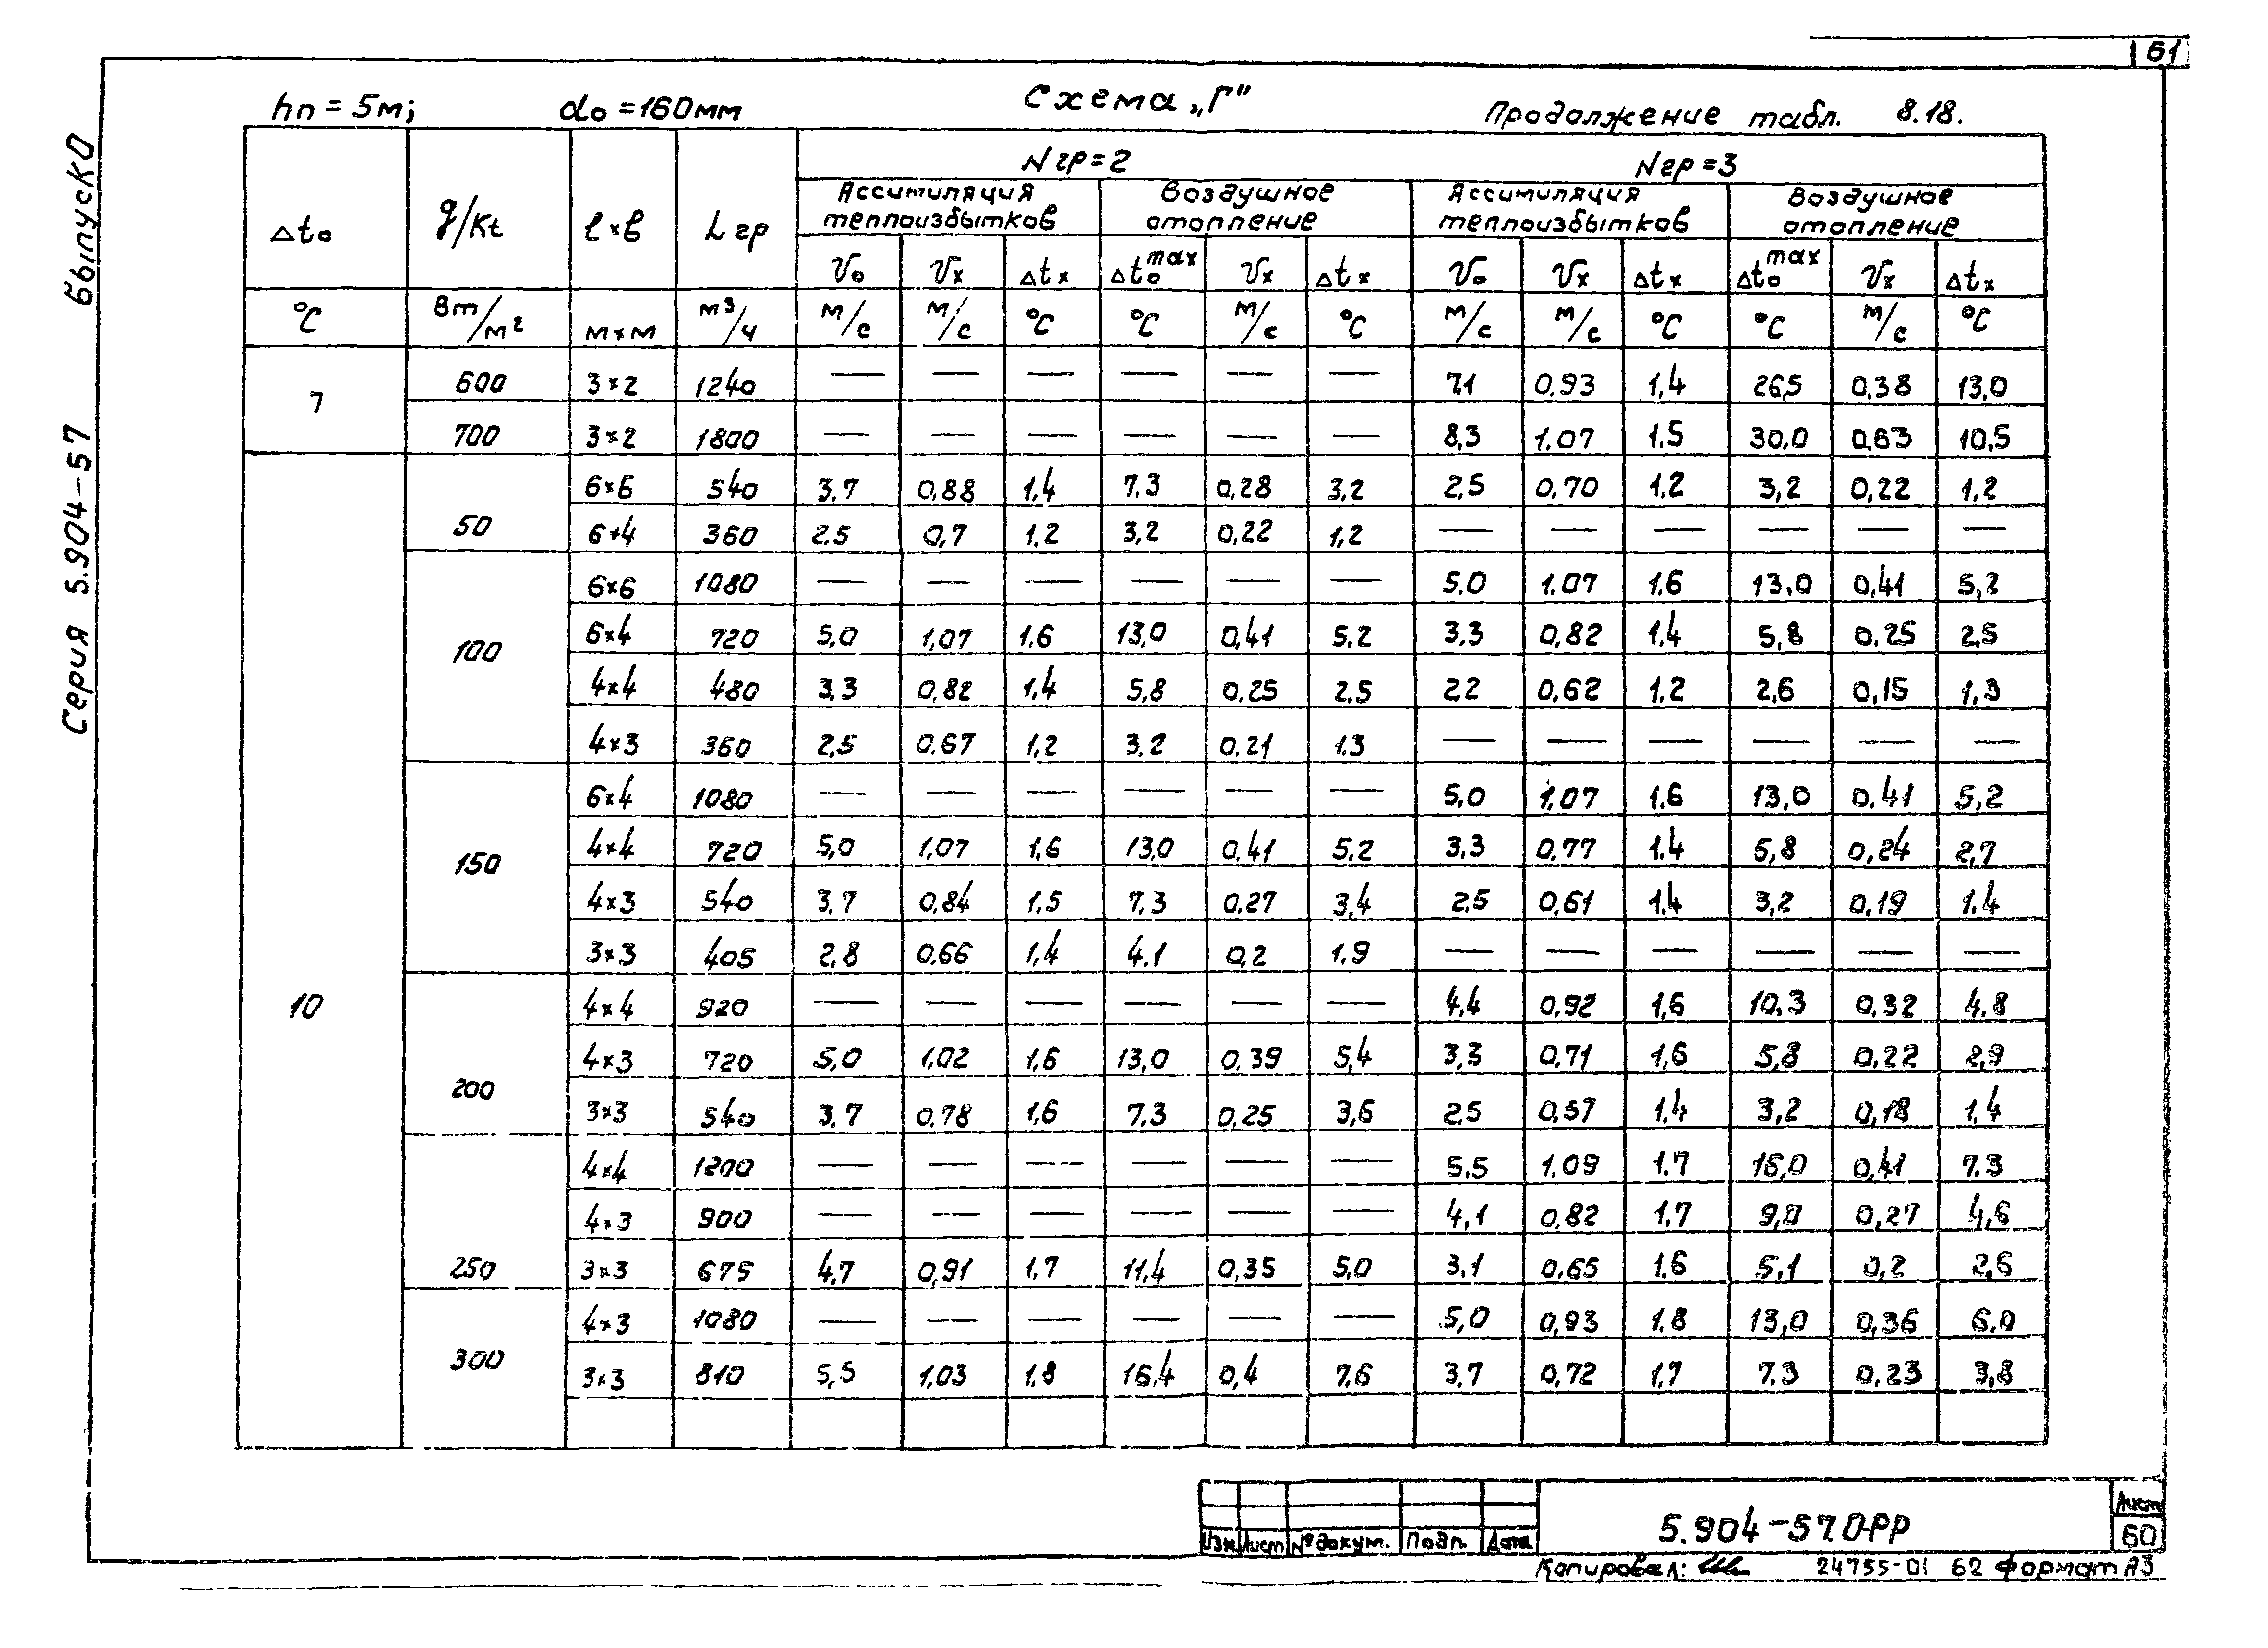 61
Серия 5.904-57 выпуск 0
hп = 5м; do = 160мм Схема „Г" Продолжение табл. 8.18.
Δto g/Kt l×в Lгр Nгр=2 Nгр=3
Ассимиляция теплоизбытков Воздушное отопление Ассимиляция теплоизбытков Воздушное отопление
Vo Vx Δtx Δto max Vx Δtx Vo Vx Δtx Δto max Vx Δtx
°C Вт/м² м×м м³/ч м/с м/с °C °C м/с °C м/с м/с °C °C м/с °C
7 600 3×2 1240 — — — — — — 7,1 0,93 1,4 26,5 0,38 13,0
700 3×2 1800 — — — — — — 8,3 1.07 1.5 30,0 0,63 10,5
10 50 6×6 540 3,7 0,88 1,4 7,3 0,28 3,2 2,5 0,70 1,2 3,2 0,22 1,2
6×4 360 2.5 0,7 1.2 3,2 0,22 1,2 — — — — — —
100 6×6 1080 — — — — — — 5.0 1.07 1.6 13,0 0,41 5,2
6×4 720 5,0 1,07 1.6 13,0 0,41 5.2 3.3 0,82 1,4 5,8 0.25 2,5
4×4 480 3.3 0,82 1,4 5,8 0,25 2.5 2,2 0,62 1.2 2,6 0,15 1,3
4×3 360 2,5 0,67 1,2 3,2 0,21 1.3 — — — — — —
150 6×4 1080 — — — — — — 5,0 1,07 1.6 13,0 0,41 5,2
4×4 720 5,0 1,07 1,6 13,0 0,41 5.2 3.3 0,77 1.4 5,8 0,24 2,7
4×3 540 3.7 0,84 1,5 7.3 0.27 3,4 2,5 0,61 1,4 3,2 0,19 1.4
3×3 405 2,8 0,66 1,4 4.1 0,2 1.9 — — — — — —
200 4×4 920 — — — — — — 4,4 0,92 1,6 10,3 0,32 4,8
4×3 720 5,0 1,02 1,6 13,0 0,39 5,4 3,3 0,71 1,6 5,8 0,22 2,9
3×3 540 3,7 0,78 1,6 7.3 0,25 3,6 2,5 0,57 1,4 3,2 0,18 1,4
250 4×4 1200 — — — — — — 5,5 1,09 1.7 16,0 0,41 7.3
4×3 900 — — — — — — 4,1 0,82 1,7 9,0 0,27 4,6
3×3 675 4,7 0,91 1,7 11,4 0,35 5.0 3,1 0,65 1.6 5,1 0,2 2,6
300 4×3 1080 — — — — — — 5,0 0,93 1.8 13,0 0,36 6.0
3×3 810 5,5 1,03 1,8 16,4 0,4 7,6 3,7 0,72 1,7 7.3 0,23 3,8
Изм Лист № докум. Подп. Дата
5.904-57.0РР
Лист
60
Копировал: 24755-01 62 Формат А3